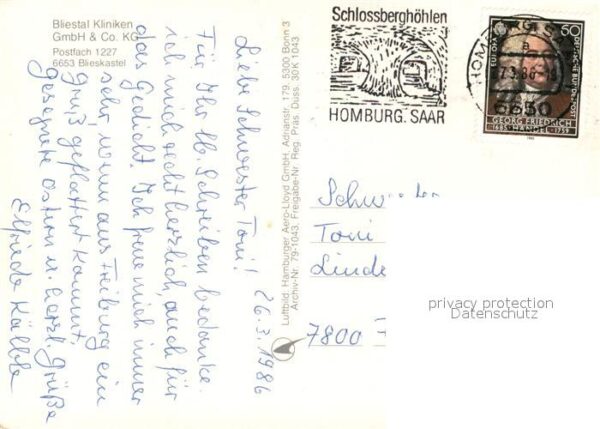 Bliestal Kliniken
GmbH & Co. KG
Postfach 1227
6653 Blieskastel
26.3.1986
Liebe Schwester Toni!
Für Ihr lb. Schreiben bedanke
ich mich recht herzlich, auch für
das Gedicht. Ich freue mich immer
sehr, wenn aus Freiburg ein
Gruß geflattert kommt.
Gesegnete Ostern u. herzl. Grüße
Elfriede
Luftbild: Hamburger Aero-Lloyd GmbH, Adrianstr. 179, 5300 Bonn 3
Archiv-Nr. 79-1043, Freigabe-Nr. Reg. Präs. Düss. 30K1043
Schlossberghöhlen
HOMBURG, SAAR
HOMBURG, S
a
6650
60
DEUTSCHE BUNDESPOST
EUROPA
GEORG FRIEDRICH
1685 HÄNDEL 1759
Toni
Linde
7800
privacy protection
Datenschutz